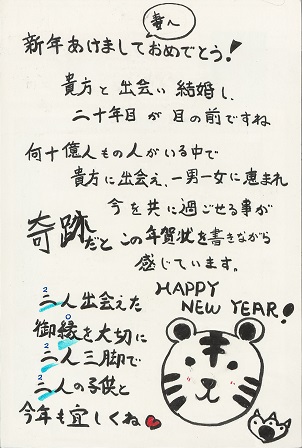 妻へ
新年あけましておめでとう!
貴方と出会い結婚し、
二十年目が目の前ですね
何十億人もの人がいる中で
貴方に出会え、一男一女に恵まれ
今を共に過ごせる事が
奇跡だとこの年賀状を書きながら
感じています。
HAPPY
NEW YEAR!
二人出会えた
2
御縁を大切に
0
二人三脚で
2
二人の子供と
2
今年も宜しくね